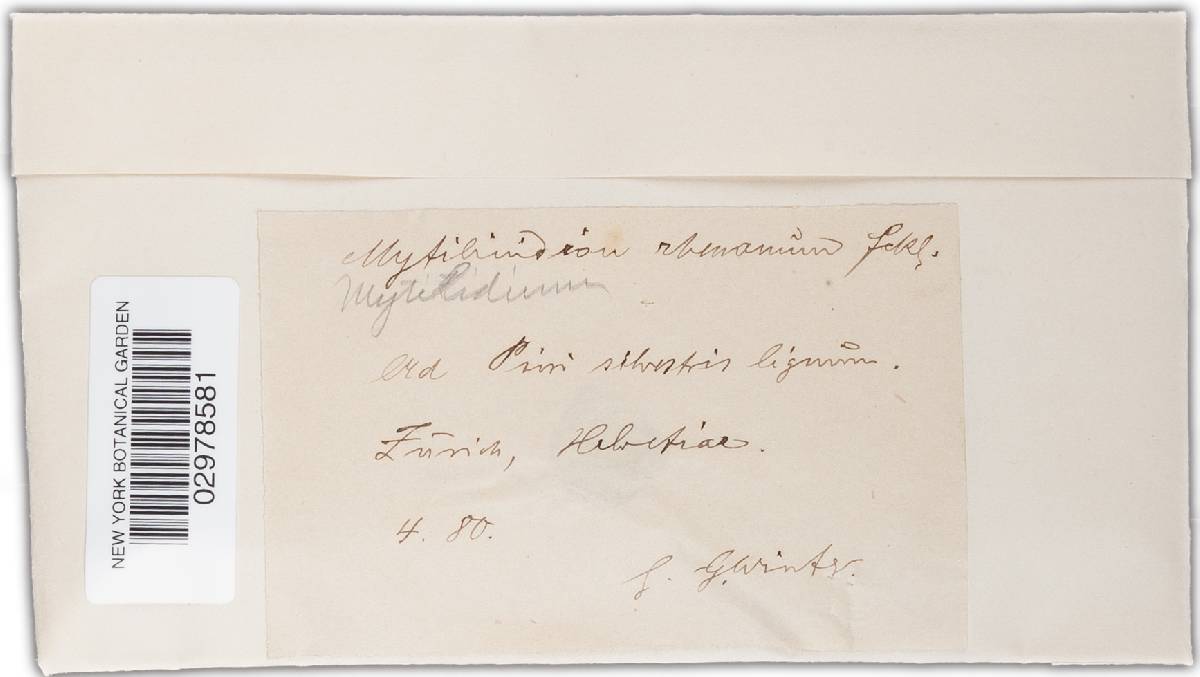 Mytilindion rhenanum fckl.
Mytilidium
Ad Pini silvestris lignum.
Zürich, Helvetiae.
4. 80.
G. Winter.
NEW YORK BOTANICAL GARDEN
02978581